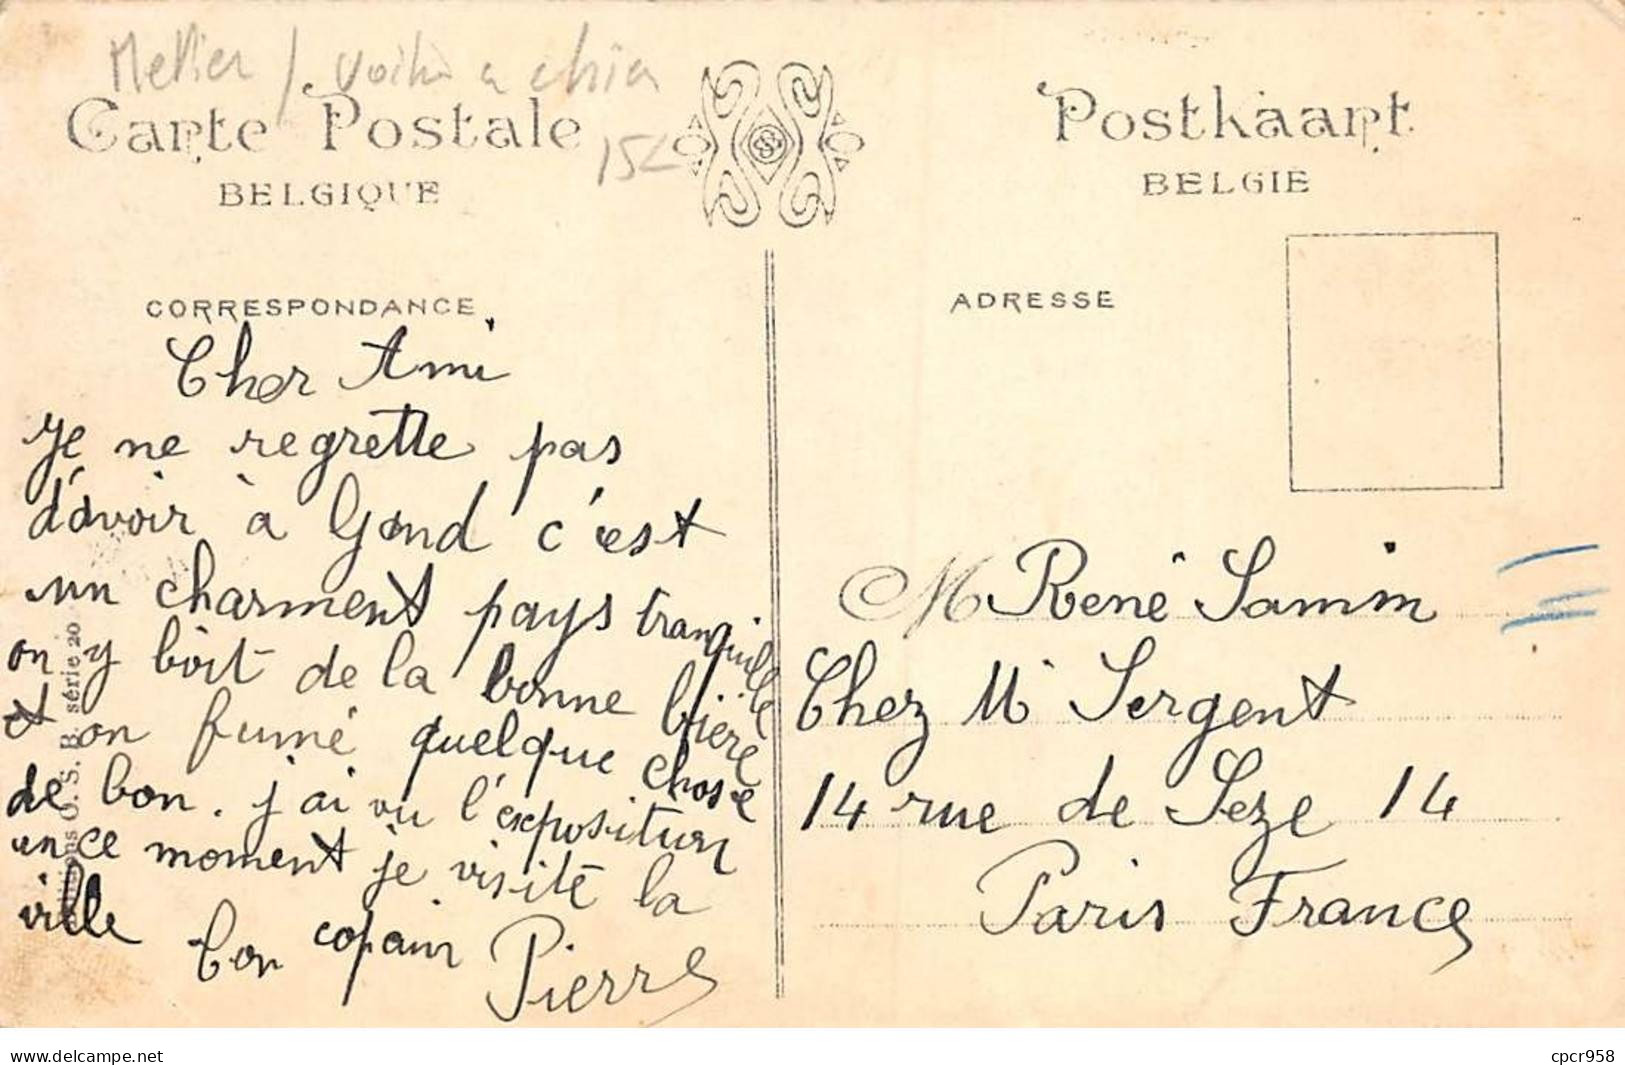 Metier / voiture a chien
15€
Carte Postale
BELGIQUE
Postkaart
BELGIE
CORRESPONDANCE
ADRESSE
Cher Ami
Je ne regrette pas
d'avoir à Gand c'est
un charment pays tranquille
on y boit de la bonne bière
et on fume quelque chose
de bon. j'ai vu l'exposition
en ce moment je visite la
ville
Ton copain Pierre
M René Samin
Chez Mr Sergent
14 rue de Seze 14
Paris France
S. B. série 20
delcampe.net
cpcr958